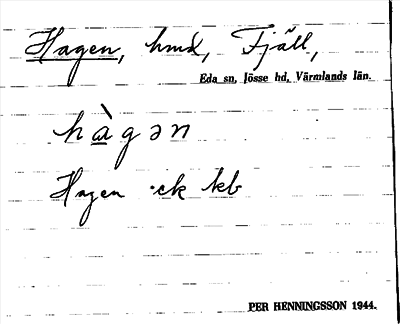 Hagen, hmd, Fjäll,
Eda sn, Jösse hd, Värmlands län.
hàgən
Hagen ck kb
PER HENNINGSSON 1944.